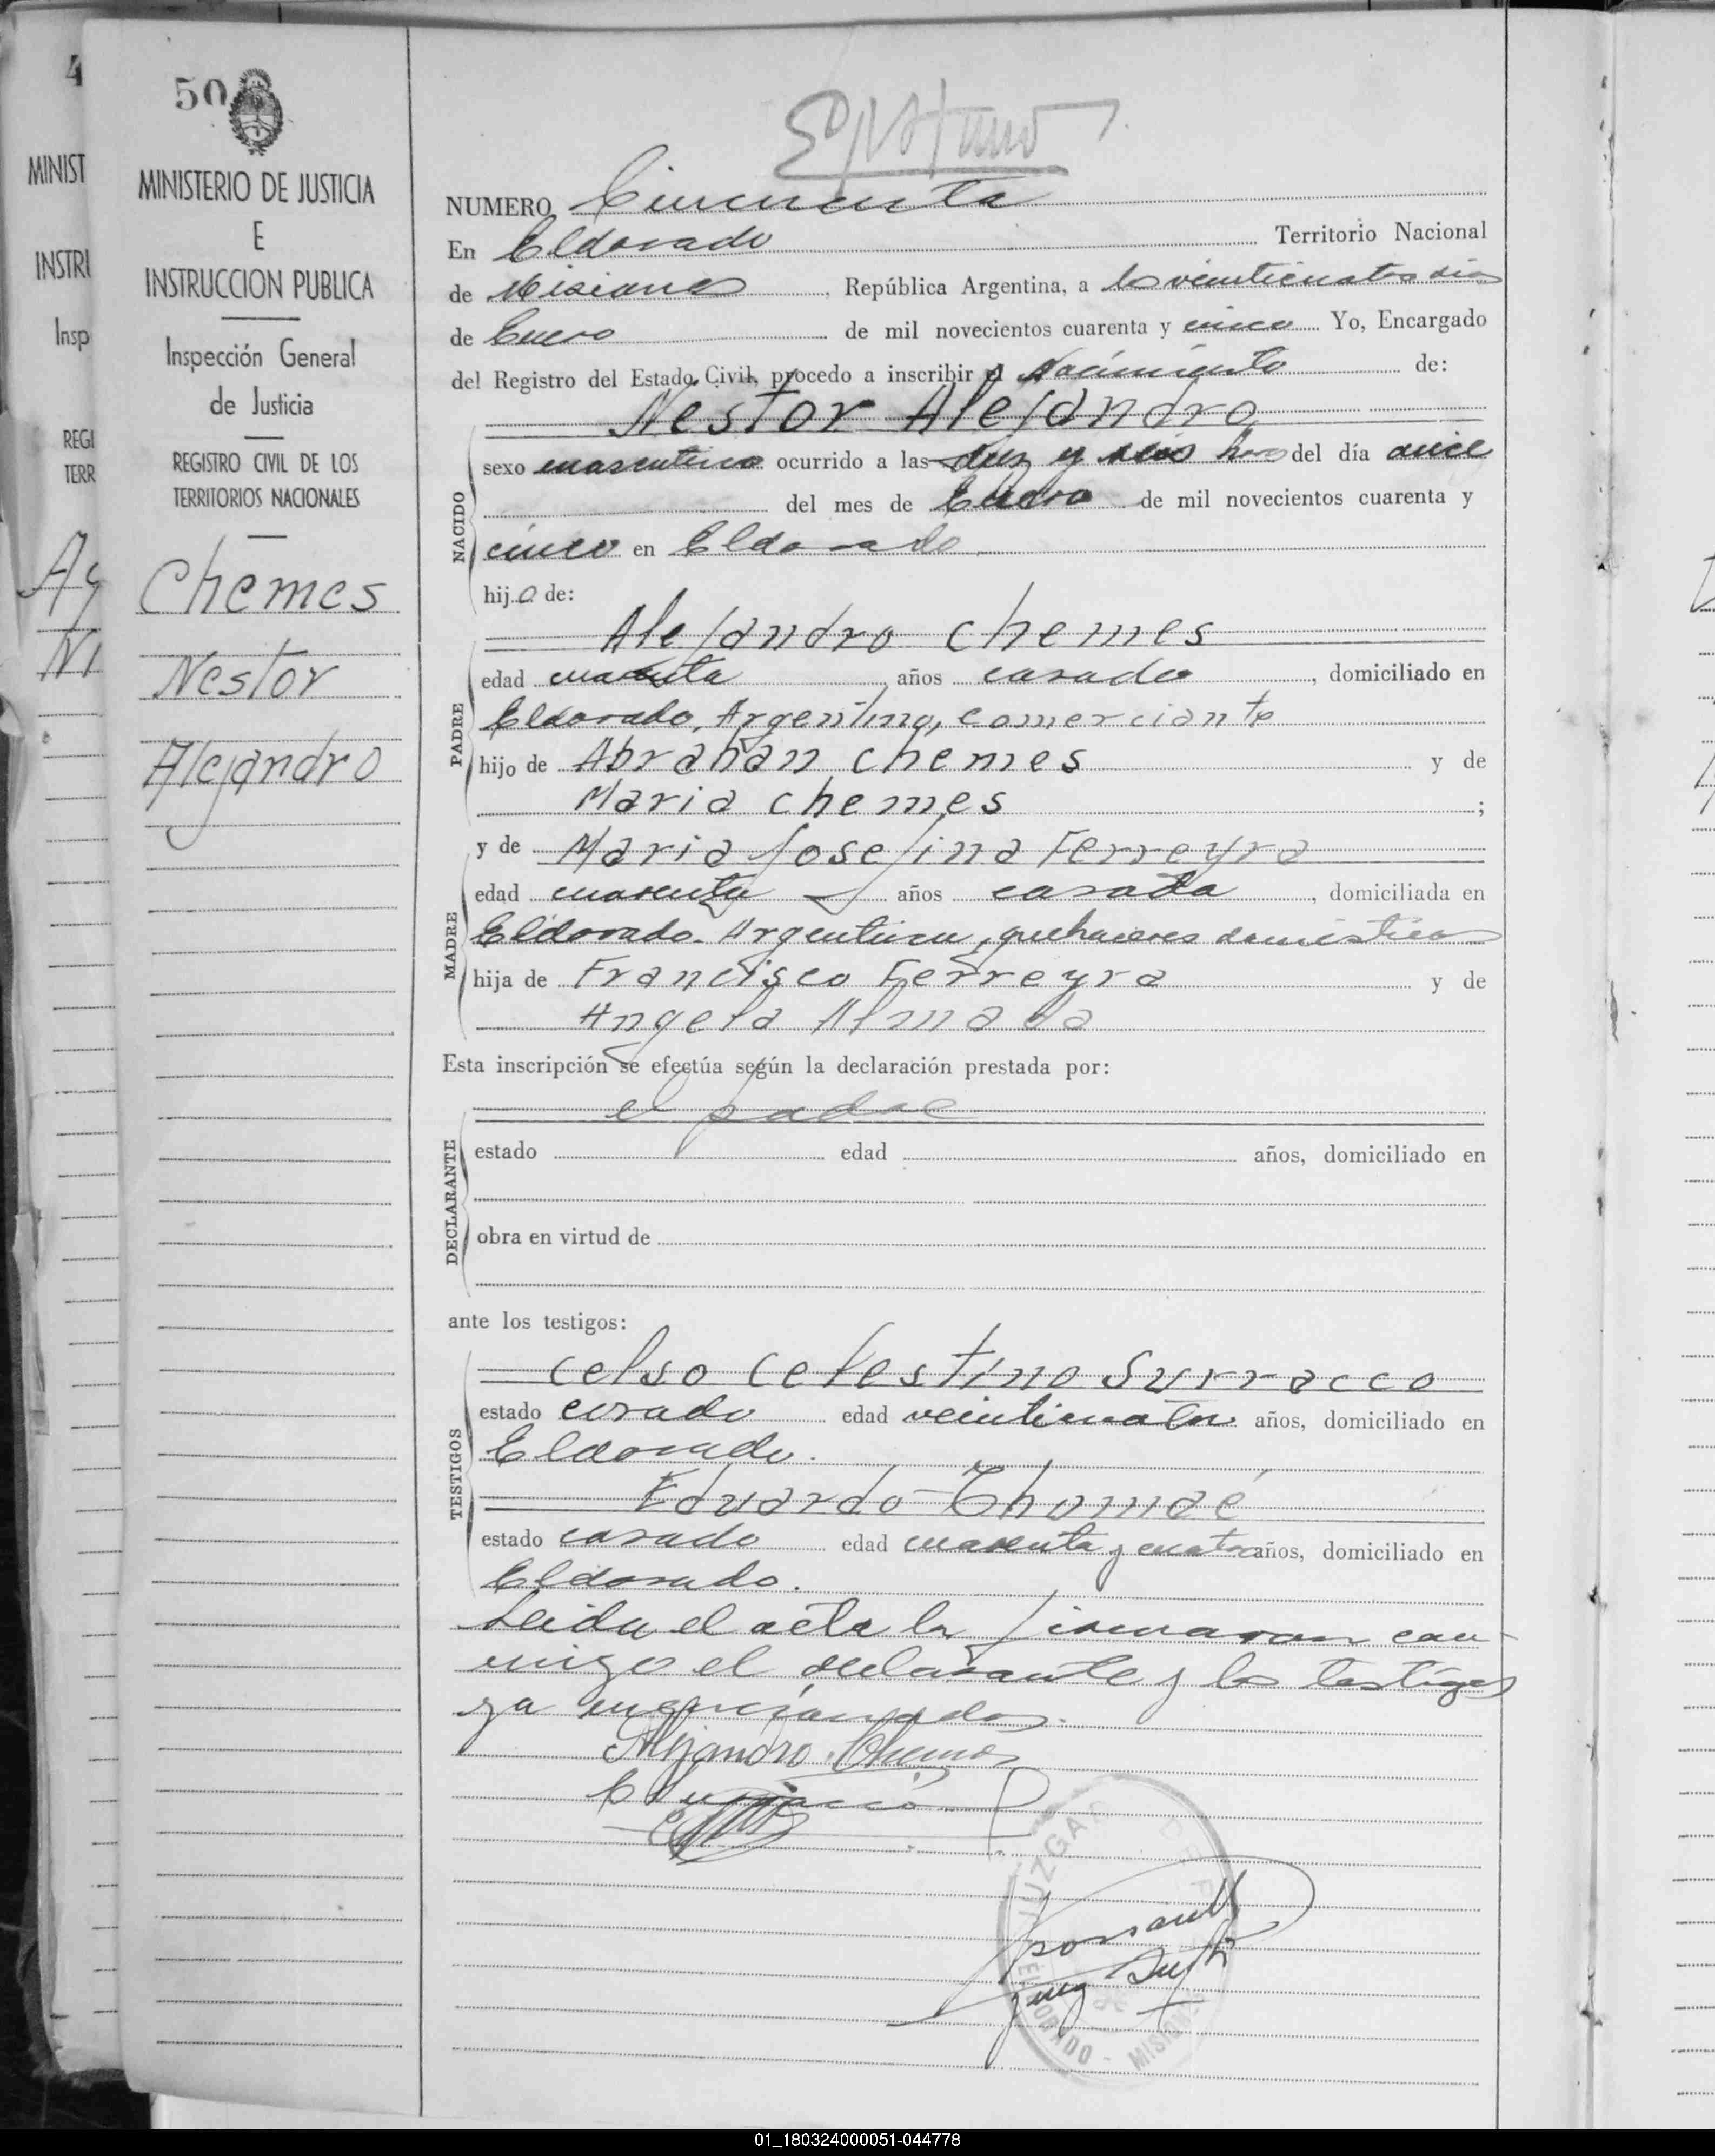 4
50
MINIST
INSTRI
Insp
REGI
TERR
MINISTERIO DE JUSTICIA
E
INSTRUCCION PUBLICA
Inspección General
de Justicia
REGISTRO CIVIL DE LOS
TERRITORIOS NACIONALES
Chemes
Nestor
Alejandro
NUMERO Cincuenta
En Eldorado Territorio Nacional
de Misiones, República Argentina, a los veinticuatro dias
de Enero de mil novecientos cuarenta y cinco Yo, Encargado
del Registro del Estado Civil, procedo a inscribir el Nacimiento de:
Nestor Alejandro
NACIDO
sexo masculino ocurrido a las diez y seis horas del día once
del mes de Enero de mil novecientos cuarenta y
cinco en Eldorado
hijo de:
Alejandro Chemes
PADRE
edad cuarenta años casado, domiciliado en
Eldorado, Argentino, comerciante
hijo de Abrahan Chemes y de
Maria Chemes;
y de Maria Josefina Ferreyra
MADRE
edad cuarenta años casada, domiciliada en
Eldorado. Argentina, quehaceres domesticos
hija de Francisco Ferreyra y de
Angela Almada
Esta inscripción se efectúa según la declaración prestada por:
el padre
DECLARANTE
estado edad años, domiciliado en
obra en virtud de
ante los testigos:
Celso Celestino Surracco
TESTIGOS
estado casado edad veinticuatro años, domiciliado en
Eldorado.
Eduardo Thomaé
estado casado edad cuarenta y cuatro años, domiciliado en
Eldorado.
Leida el acta la firmaron con-
migo el declarante y los testigos
ya mencionados.
Alejandro Chemes
JUZGA
ELDORADO - MISIONES
Juez de Paz
01_180324000051-044778